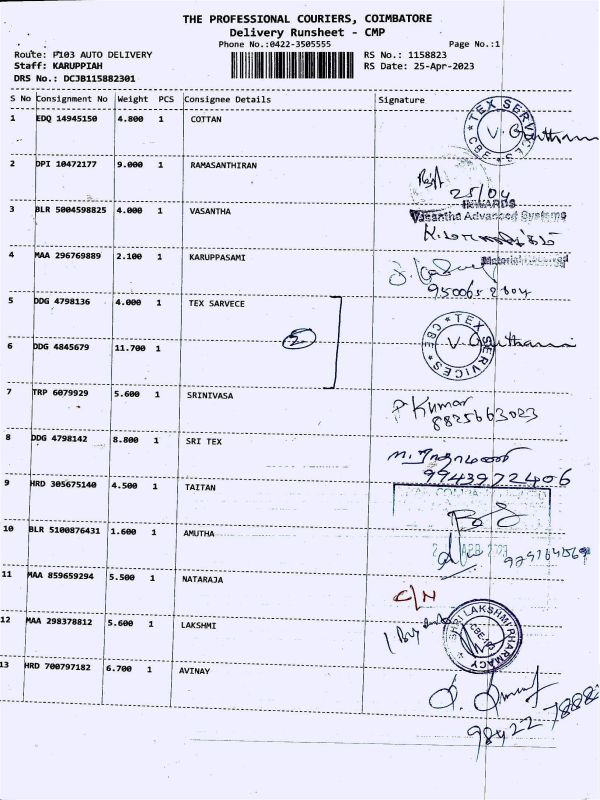 THE PROFESSIONAL COURIERS, COIMBATORE
Delivery Runsheet - CMP
Phone No.:0422-3505555 Page No.:1
Route: P103 AUTO DELIVERY RS No.: 1158823
Staff: KARUPPIAH RS Date: 25-Apr-2023
DRS No.: DCJB115882301
S No Consignment No Weight PCS Consignee Details Signature
1 EDQ 14945150 4.800 1 COTTAN
TEX SERVICES CBE
2 DPI 10472177 9.000 1 RAMASANTHIRAN
25/04
INWARDS
3 BLR 5004598825 4.000 1 VASANTHA Vasantha Advanced Systems
4 MAA 296769889 2.100 1 KARUPPASAMI Material Received
5 DDG 4798136 4.000 1 TEX SARVECE
2
TEX SERVICES CBE
6 DDG 4845679 11.700 1
7 TRP 6079929 5.600 1 SRINIVASA P Kumar
8825663023
8 DDG 4798142 8.800 1 SRI TEX
9943972406
9 HRD 305675140 4.500 1 TAITAN
10 BLR 5100876431 1.600 1 AMUTHA
11 MAA 859659294 5.500 1 NATARAJA C/N
12 MAA 298378812 5.600 1 LAKSHMI
SHRI LAKSHMI PHARMACY
13 HRD 700797182 6.700 1 AVINAY